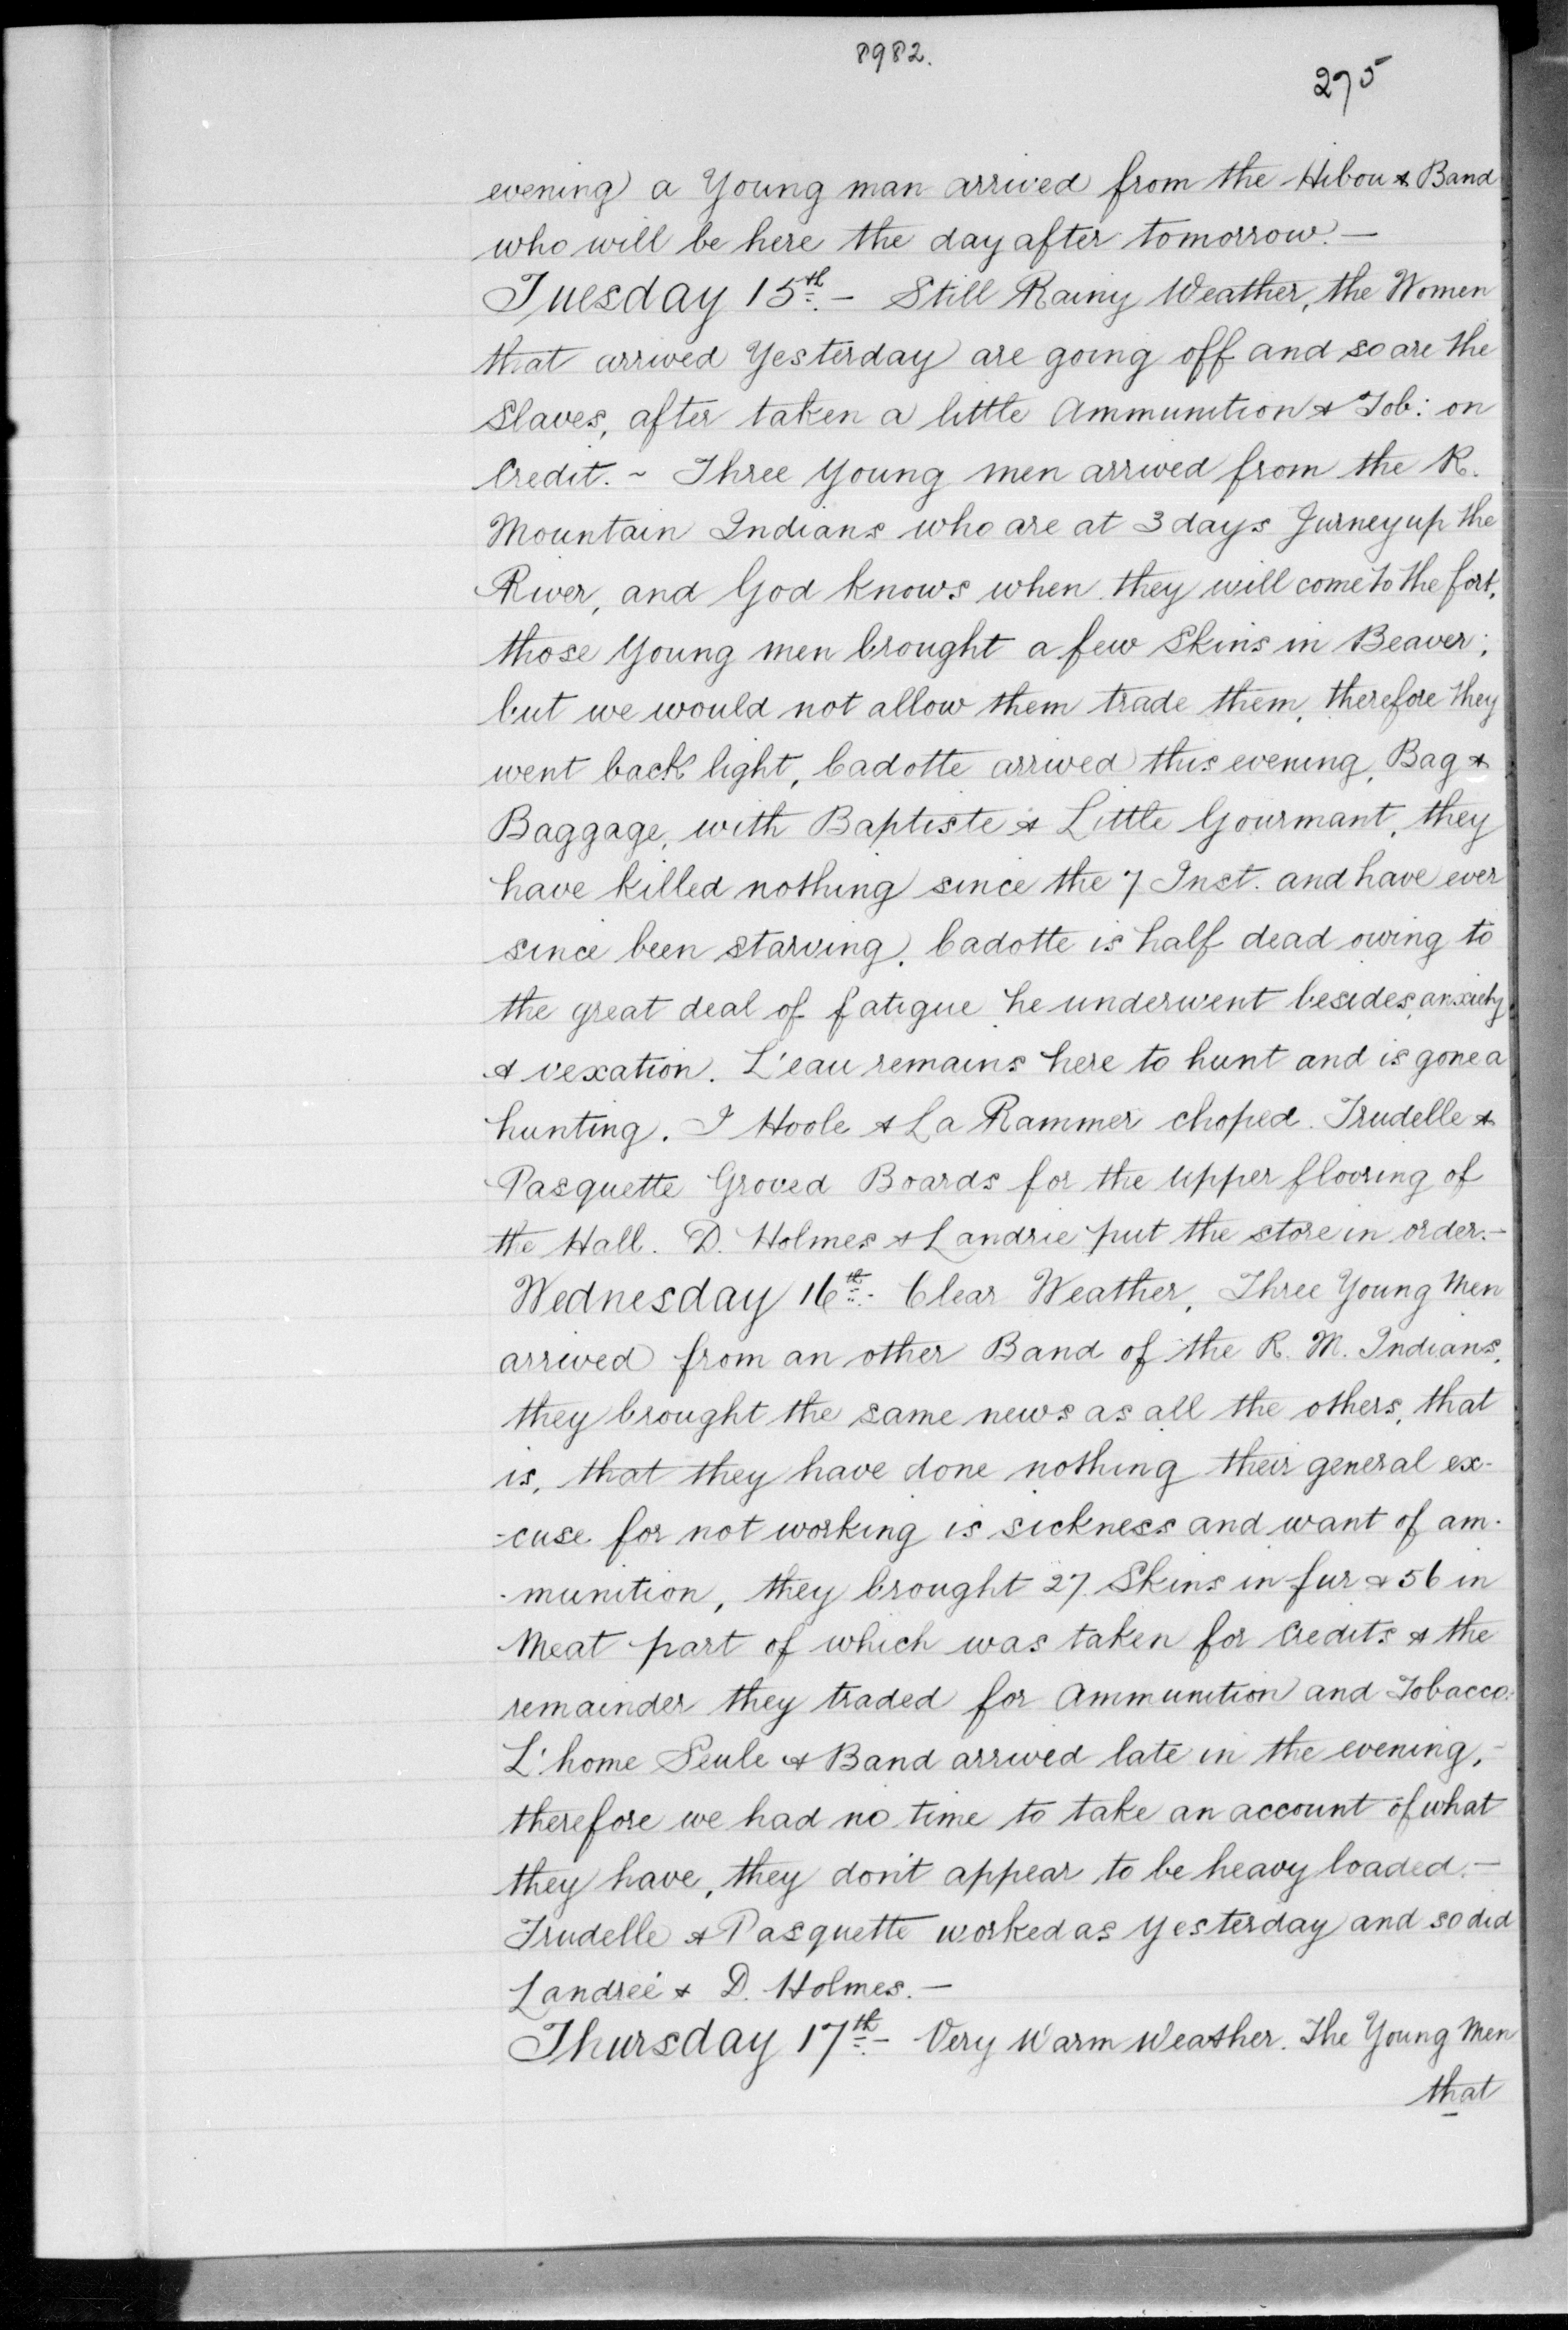 8982.
275
evening a Young man arrived from the Hibou & Band
who will be here the day after tomorrow. —
Tuesday 15th. — Still Rainy Weather, the Women
that arrived Yesterday are going off and so are the
Slaves, after taken a little Ammunition & Tob: on
Credit. ~ Three Young men arrived from the R.
Mountain Indians who are at 3 days Jurney up the
River, and God knows when they will come to the fort,
those Young men brought a few Skins in Beaver;
but we would not allow them trade them, therefore they
went back light, Cadotte arrived this evening, Bag &
Baggage, with Baptiste & Little Gourmant, they
have killed nothing since the 7 Inst. and have ever
since been starving. Cadotte is half dead owing to
the great deal of fatigue he underwent besides, anxiety
& vexation. L'eau remains here to hunt and is gone a
hunting. I Hoole & La Rammer choped. Trudelle &
Pasquette Groved Boards for the upper flooring of
the Hall. D. Holmes & Landrie put the store in order. —
Wednesday 16th. - Clear Weather, Three Young Men
arrived from an other Band of the R. M. Indians,
they brought the same news as all the others, that
is, that they have done nothing their general ex-
-cuse for not working is sickness and want of am-
-munition, they brought 27 Skins in fur & 56 in
Meat part of which was taken for Credits & the
remainder they traded for Ammunition and Tobacco:
L'home Seule & Band arrived late in the evening, -
therefore we had no time to take an account of what
they have, they don't appear to be heavy loaded. —
Trudelle & Pasquette worked as Yesterday and so did
Landrie & D. Holmes. —
Thursday 17th. - Very Warm Weather. The Young Men
that